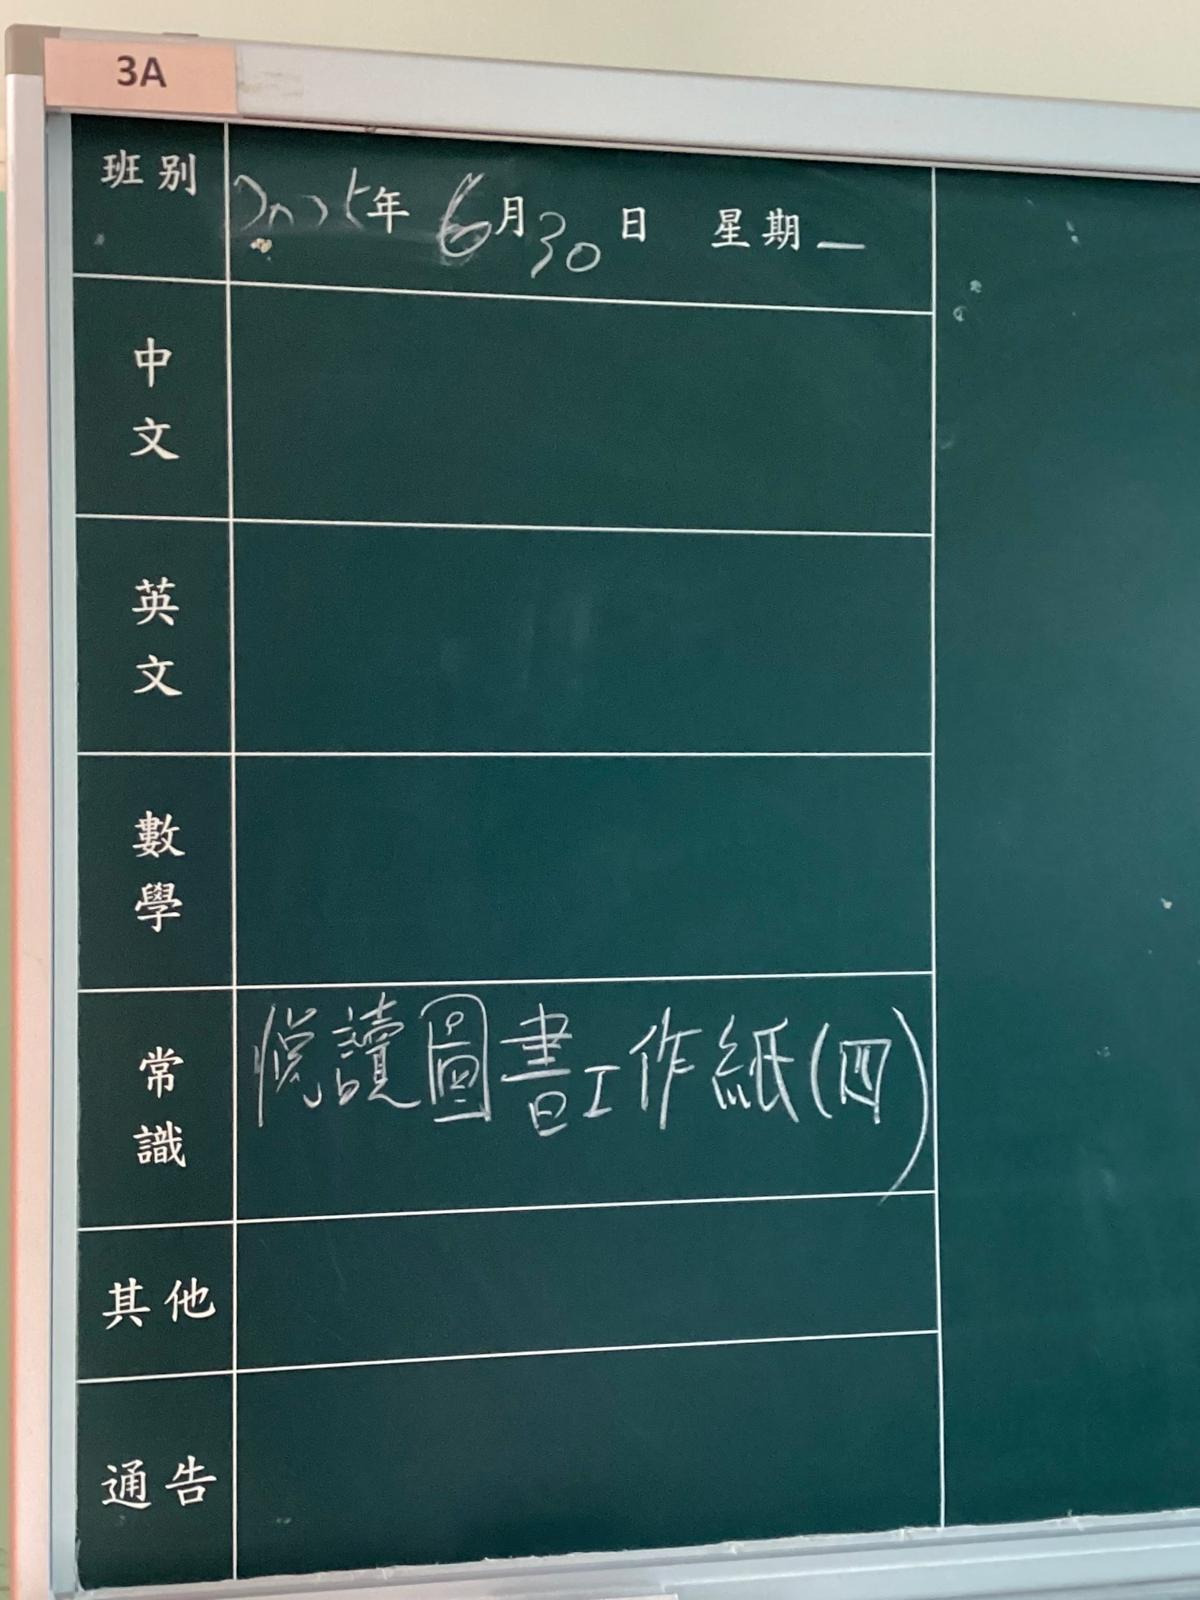 3A
班別 2025年 6月30日 星期一
中文
英文
數學
常識 悅讀圖書工作紙(四)
其他
通告